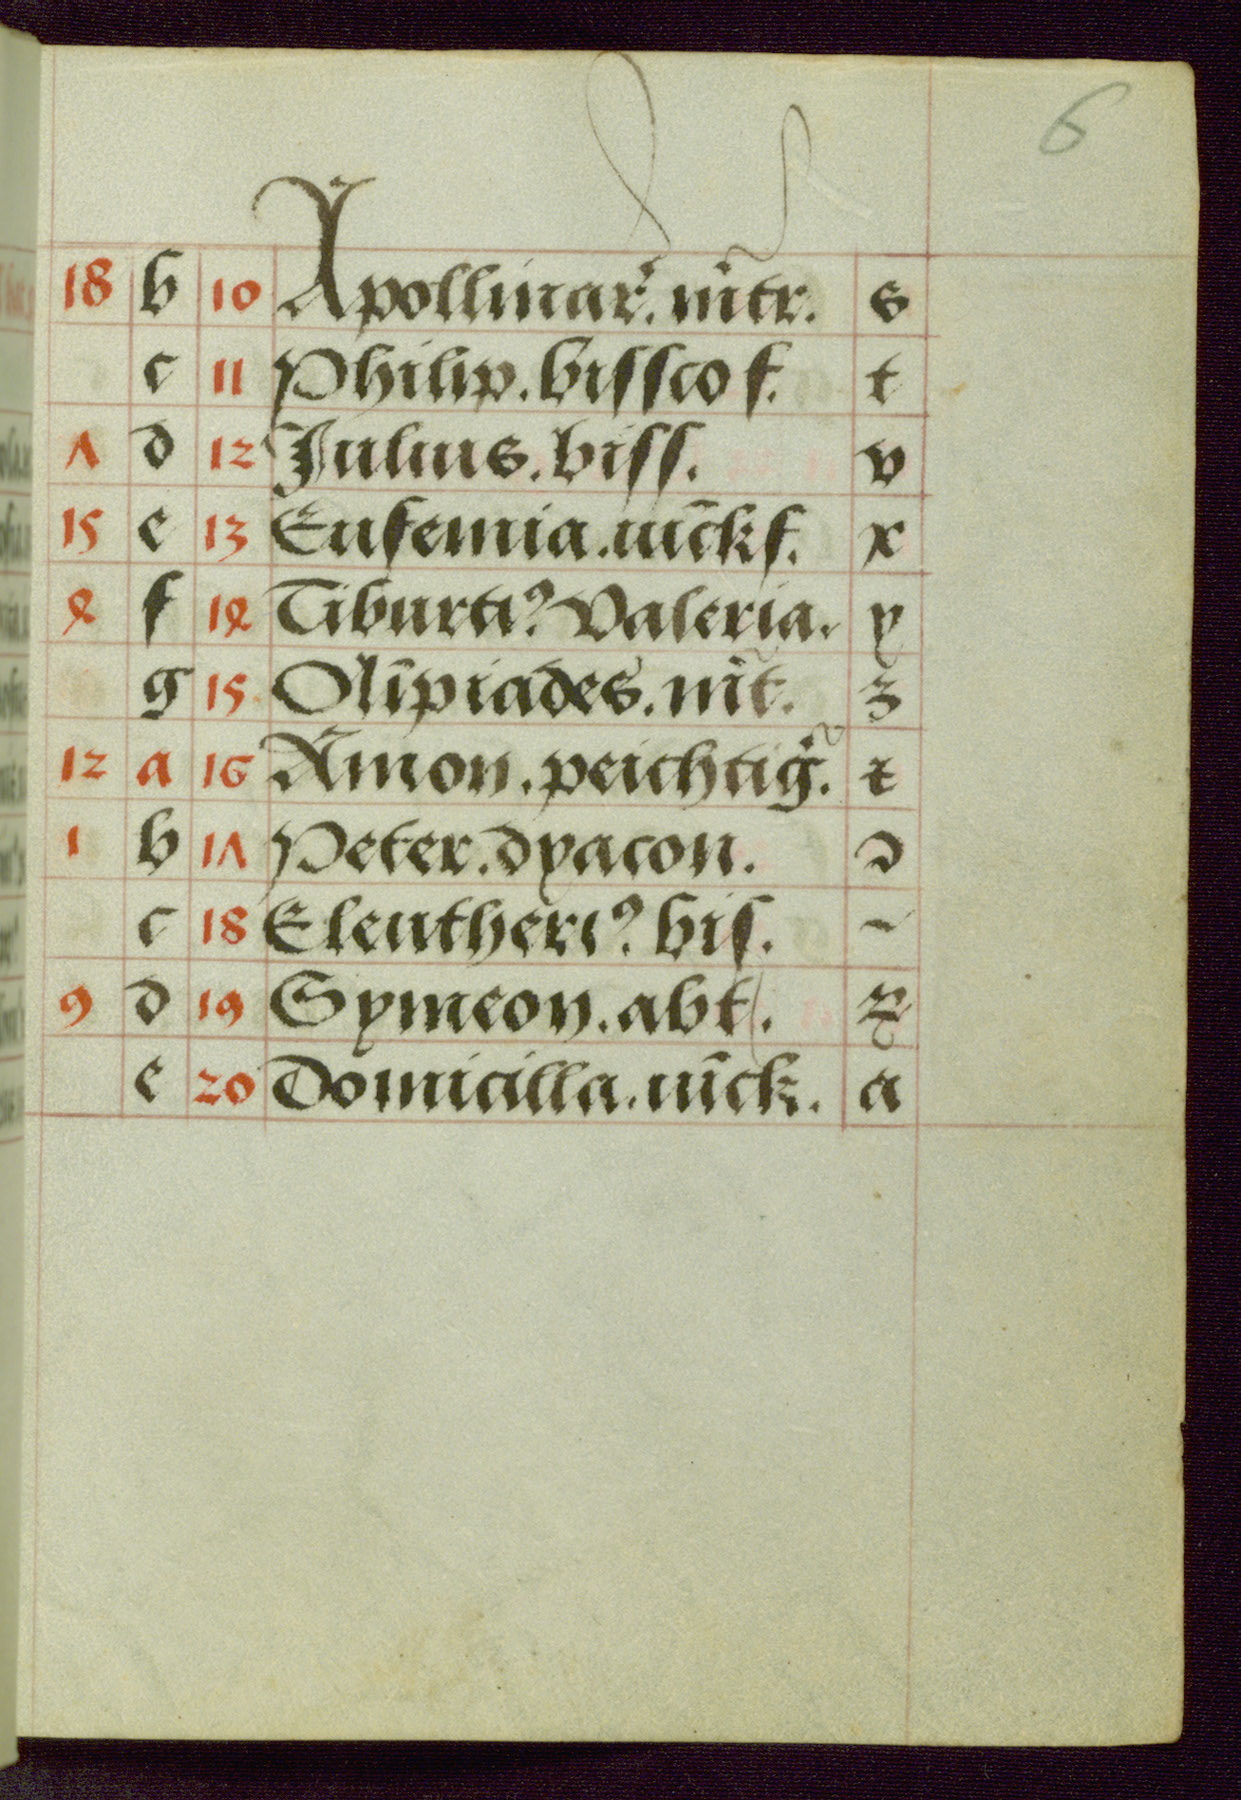 6
18 b 10 Apollinar̃. m̃tr. s
c 11 Philip. bisscof. t
7 d 12 Julius. biss. v
15 e 13 Eufemia. iũckf. x
4 f 14 Tiburtiꝰ Valeria. y
g 15 Olĩpiades. m̃t. z
12 a 16 Amon. peichtig̃. t
1 b 17 Peter. dyacon. ɔ
c 18 Eleutheriꝰ. bis. ~
9 d 19 Symeon. abt.
e 20 Domicilla. iũck. a